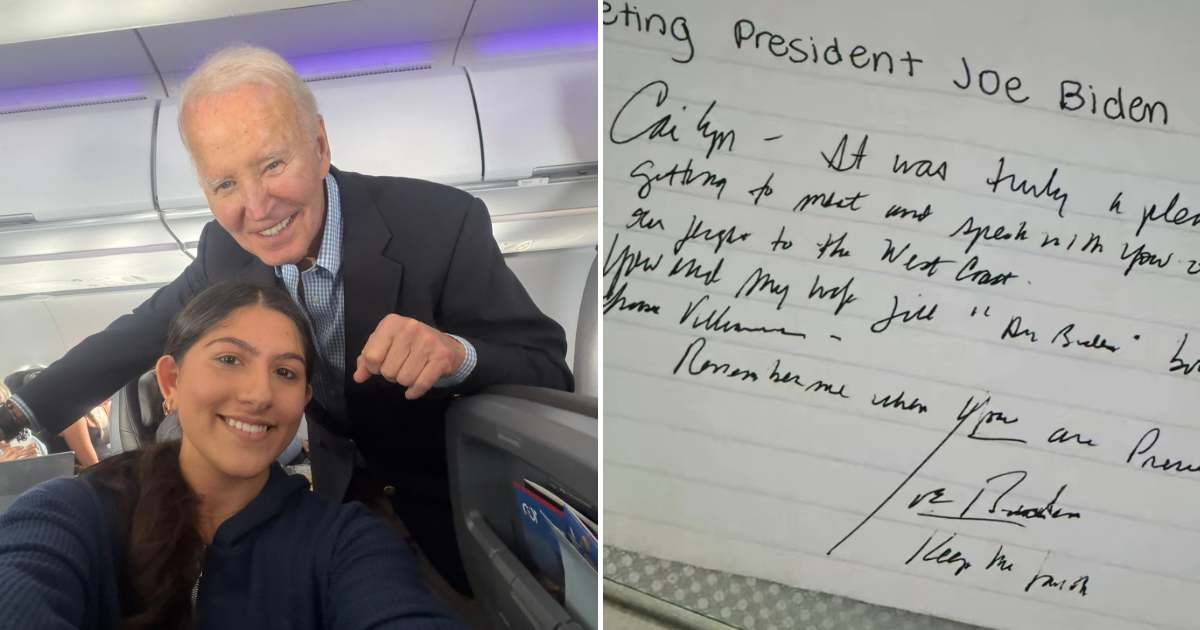 eting President Joe Biden
Caitlyn - It was truly a plea
getting to meet and speak with you o
our flight to the West Coast.
You and my wife Jill "Dr Biden" bo
Villanova -
Remember me when you are Presi
Joe Biden
Keep the faith